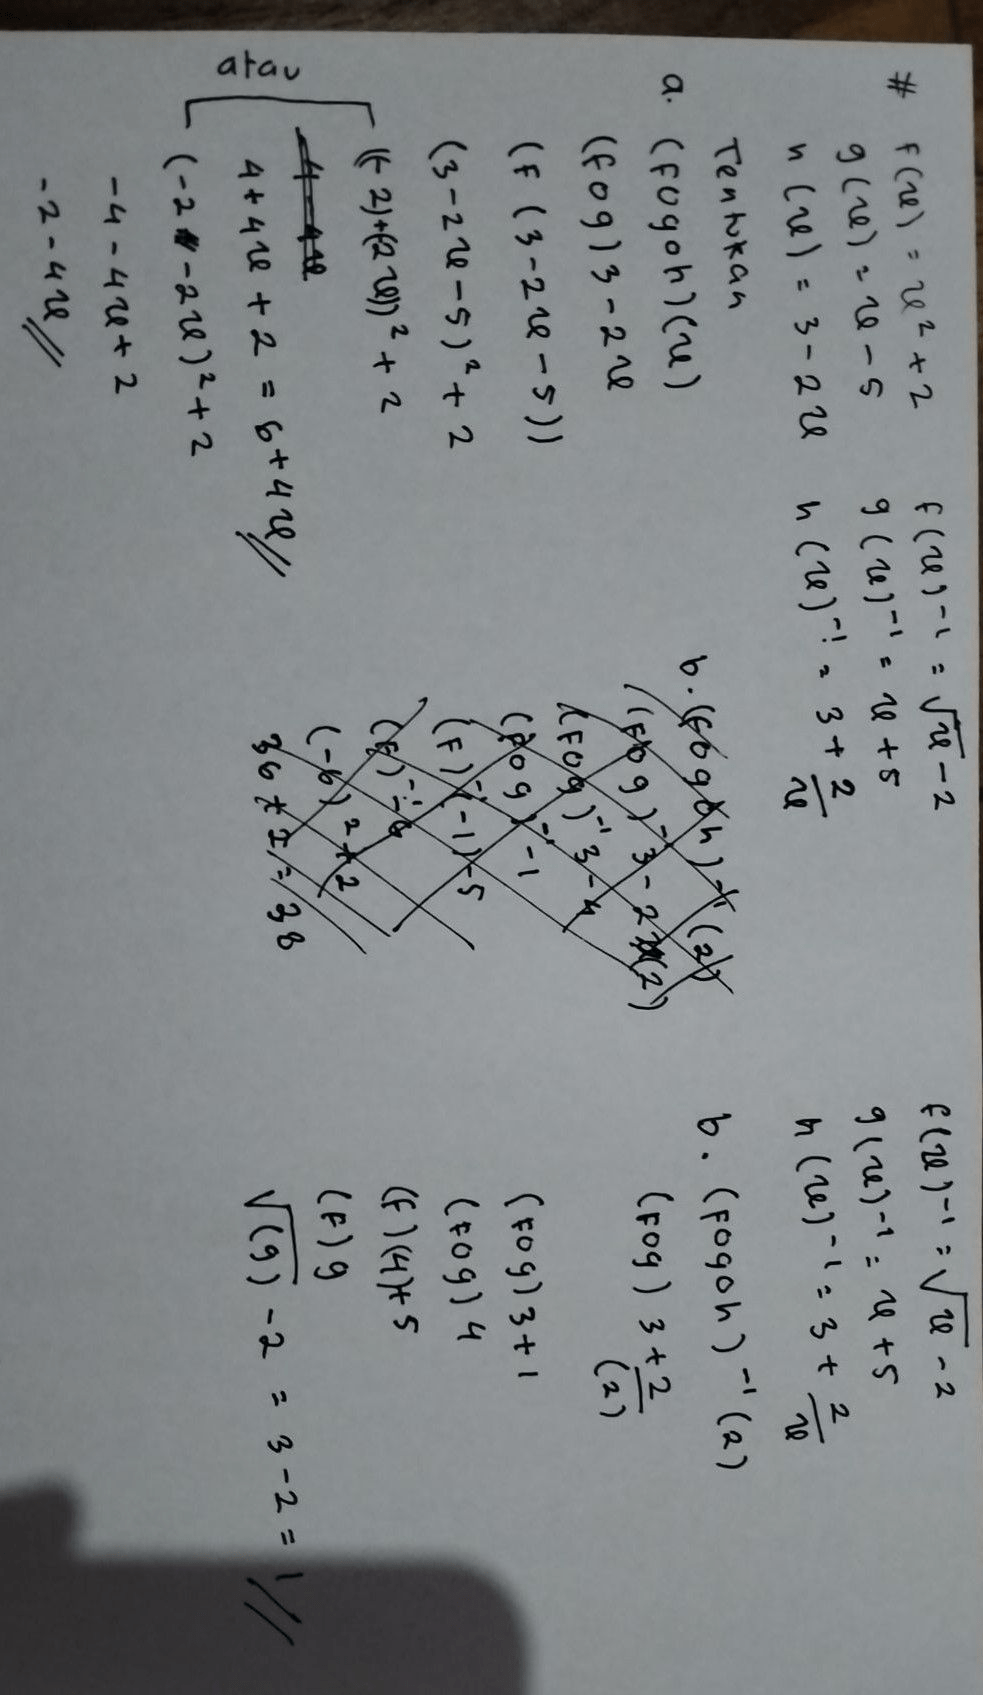 # f(x) = x² + 2
g(x) = x - 5
h(x) = 3 - 2x
f(x)⁻¹ = √x - 2
g(x)⁻¹ = x + 5
h(x)⁻¹ = 3 + 2/x
Tentukan
a. (fogoh)(x)
(fog) 3 - 2x
(f (3 - 2x - 5))
(3 - 2x - 5)² + 2
((-2)+(2x))² + 2
4 + 4x + 2 = 6 + 4x
atau
(-2 - 2x)² + 2
-4 - 4x + 2
-2 - 4x
b. (fogoh)⁻¹(2)
(fog)⁻¹ 3 - 2x(2)
(fog)⁻¹ 3 - 4
(fog)⁻¹ -1
(f)⁻¹(-1)-5
(f)⁻¹ -6
(-6)² + 2
36 + 2 = 38
f(x)⁻¹ = √x - 2
g(x)⁻¹ = x + 5
h(x)⁻¹ = 3 + 2/x
b. (fogoh)⁻¹(2)
(fog) 3 + 2/(2)
(fog) 3 + 1
(fog) 4
(f)(4)+5
(f) 9
√(9) - 2 = 3 - 2 = 1